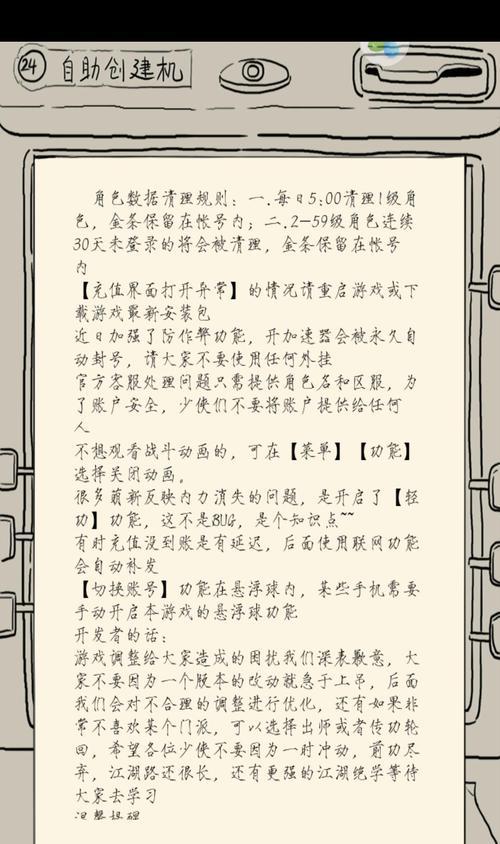 24 自助创建机
角色数据清理规则：一.每日5:00清理1级角
色，金条保留在帐号内；二.2-59级角色连续
30天未登录的将会被清理，金条保留在帐号
内
【充值界面打开异常】的情况请重启游戏或下
载游戏最新安装包
近日加强了防作弊功能，开加速器会被永久自
动封号，请大家不要使用任何外挂
官方客服处理问题只需提供角色名和区服，为
了账户安全，少侠们不要将账户提供给任何
人
不想观看战斗动画的，可在【菜单】【功能】
选择关闭动画。
很多萌新反映内力消失的问题，是开启了【轻
功】功能，这不是BUG，是个知识点~~
有时充值没到账是有延迟，后面使用联网功能
会自动补发
【切换账号】功能在悬浮球内，某些手机需要
手动开启本游戏的悬浮球功能
开发者的话：
游戏调整给大家造成的困扰我们深表歉意，大
家不要因为一个版本的改动就急于上吊，后面
我们会对不合理的调整进行优化，还有如果非
常不喜欢某个门派，可以选择出师或者传功轮
回，希望各位少侠不要因为一时冲动，前功尽
弃，江湖路还很长，还有更强的江湖绝学等待
大家去学习
温馨提醒